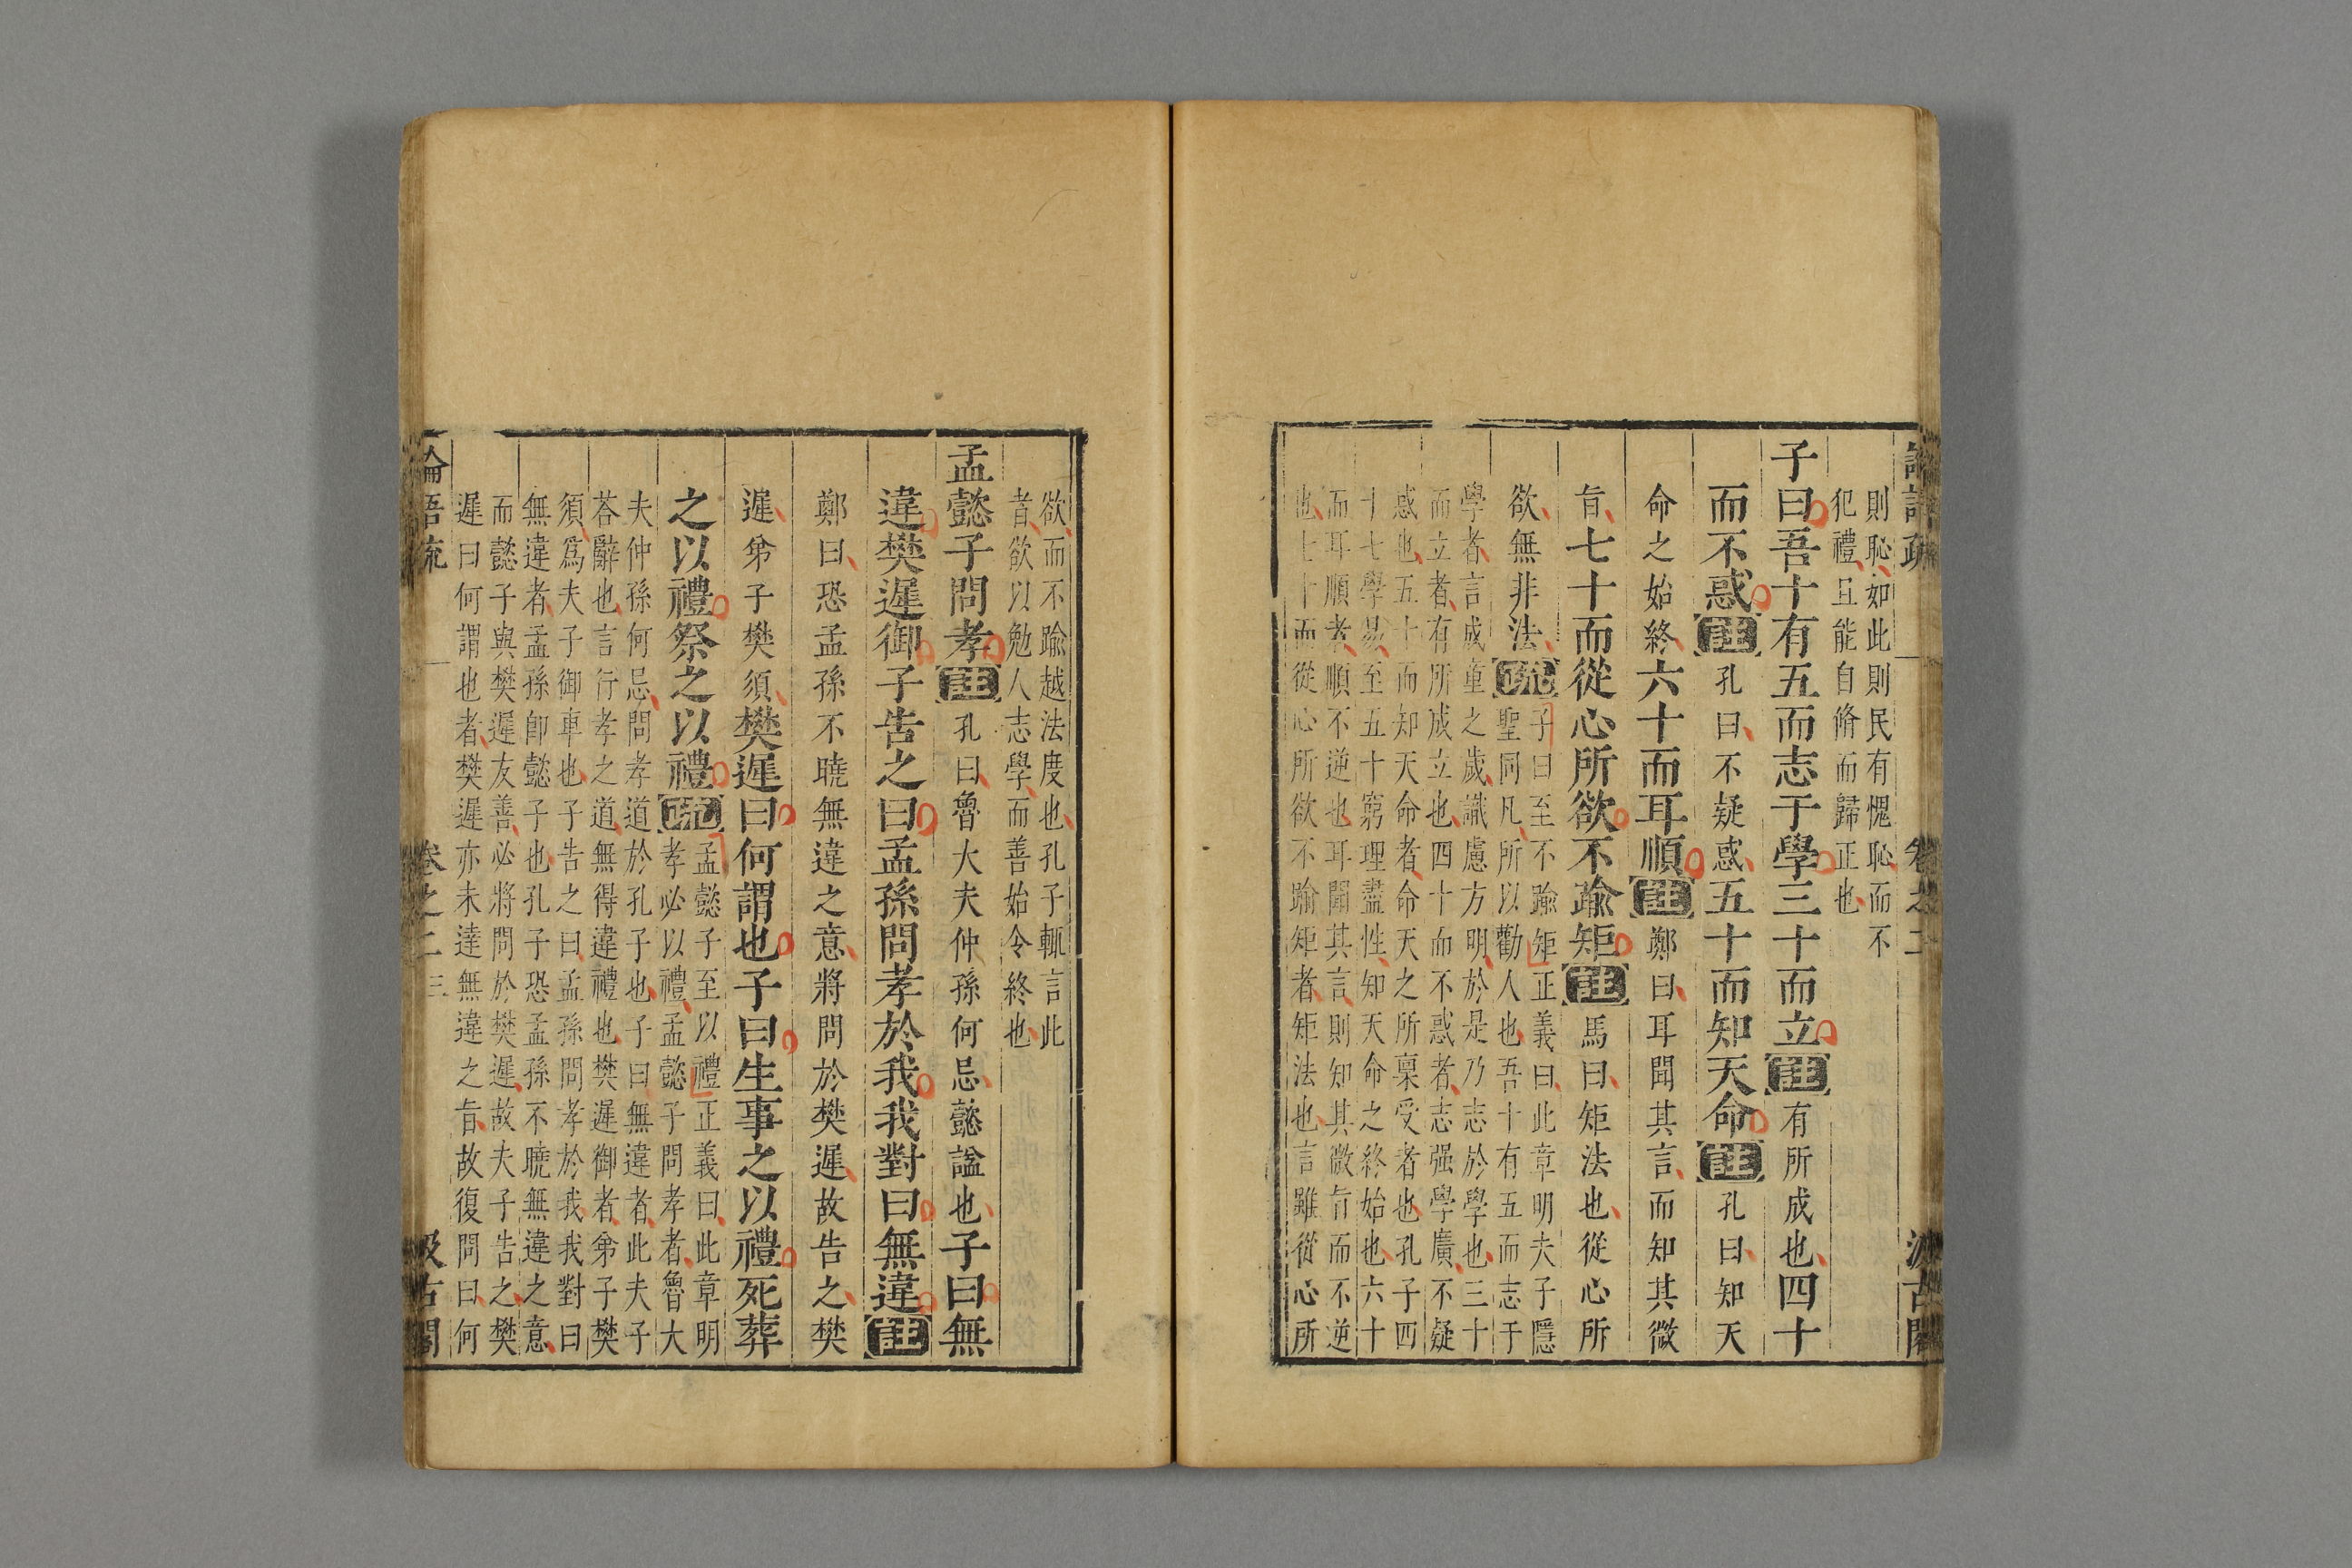 論語疏 卷之二 汲古閣
則恥如此則民有愧恥而不
犯禮且能自脩而歸正也
子曰吾十有五而志于學三十而立註有所成也四十
而不惑註孔曰不疑惑五十而知天命註孔曰知天
命之始終六十而耳順註鄭曰耳聞其言而知其微
旨七十而從心所欲不踰矩註馬曰矩法也從心所
欲無非法疏
子曰至不踰矩正義曰此章明夫子隱
聖同凡所以勸人也吾十有五而志于
學者言成童之歲識慮方明於是乃志於學也三十
而立者有所成立也四十而不惑者志强學廣不疑
惑也五十而知天命者命天之所稟受者也孔子四
十七學易至五十窮理盡性知天命之終始也六十
而耳順者順不逆也耳聞其言則知其微旨而不逆
也七十而從心所欲不踰矩者矩法也言雖從心所
欲而不踰越法度也孔子輒言此
者欲以勉人志學而善始令終也
孟懿子問孝註孔曰魯大夫仲孫何忌懿諡也子曰無
違樊遲御子告之曰孟孫問孝於我我對曰無違註
鄭曰恐孟孫不曉無違之意將問於樊遲故告之樊
遲弟子樊須樊遲曰何謂也子曰生事之以禮死葬
之以禮祭之以禮疏
孟懿子至以禮正義曰此章明
孝必以禮孟懿子問孝者魯大
夫仲孫何忌問孝道於孔子也子曰無違者此夫子
荅辭也言行孝之道無得違禮也樊遲御者弟子樊
須爲夫子御車也子告之曰孟孫問孝於我我對曰
無違者孟孫卽懿子也孔子恐孟孫不曉無違之意
而懿子與樊遲友善必將問於樊遲故夫子告之樊
遲曰何謂也者樊遲亦未達無違之旨故復問曰何
論語疏 卷之二 三 汲古閣